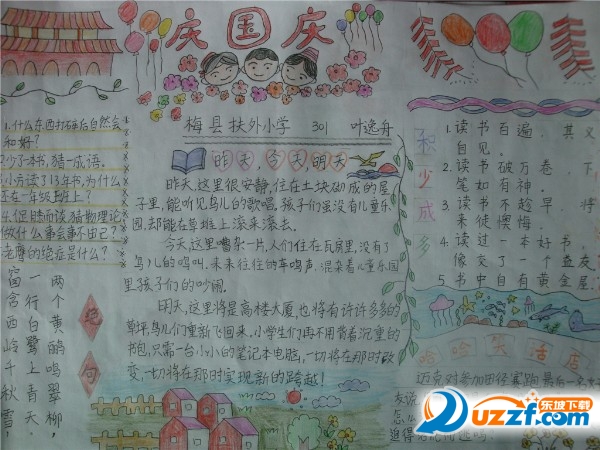 庆国庆
梅县扶外小学 301 叶逸舟
1.什么东西打破后自然会
和好?
2.少了一本书,猜一成语。
3.小方读了13年书,为什么
还在一年级班上?
做什么事会事不由己?
老唐的绝症是什么?
昨天,今天,明天
昨天,这里很安静,住在土块砌成的屋
子里,能听见鸟儿的歌唱,孩子们虽没有儿童乐
园,却能在草堆上滚来滚去。
今天这里嘈杂一片,人们住在瓦房里,没有了
鸟儿的鸣叫,来来往往的车鸣声,混杂着儿童乐园
里孩子们的吵闹。
明天,这里将是高楼大厦,也将有许许多多的
草坪,鸟儿们重新飞回来,小学生们再不用背着沉重的
书包,只需一台小小的笔记本电脑,一切将在那时改
变,一切将在那时实现新的跨越!
积少成多
1.读书百遍,其义
自见.
2.读书破万卷,下
笔如有神.
3.读书不趁早,将
来徒懊悔.
4.读过一本好书,
像交了一个益友
5.书中自有黄金屋
绝句
两个黄鹂鸣翠柳,
一行白鹭上青天
窗含西岭
秋雪,
哈哈笑话店
迈克对参加田径赛跑最后一名
东坡下载
uzzf.com